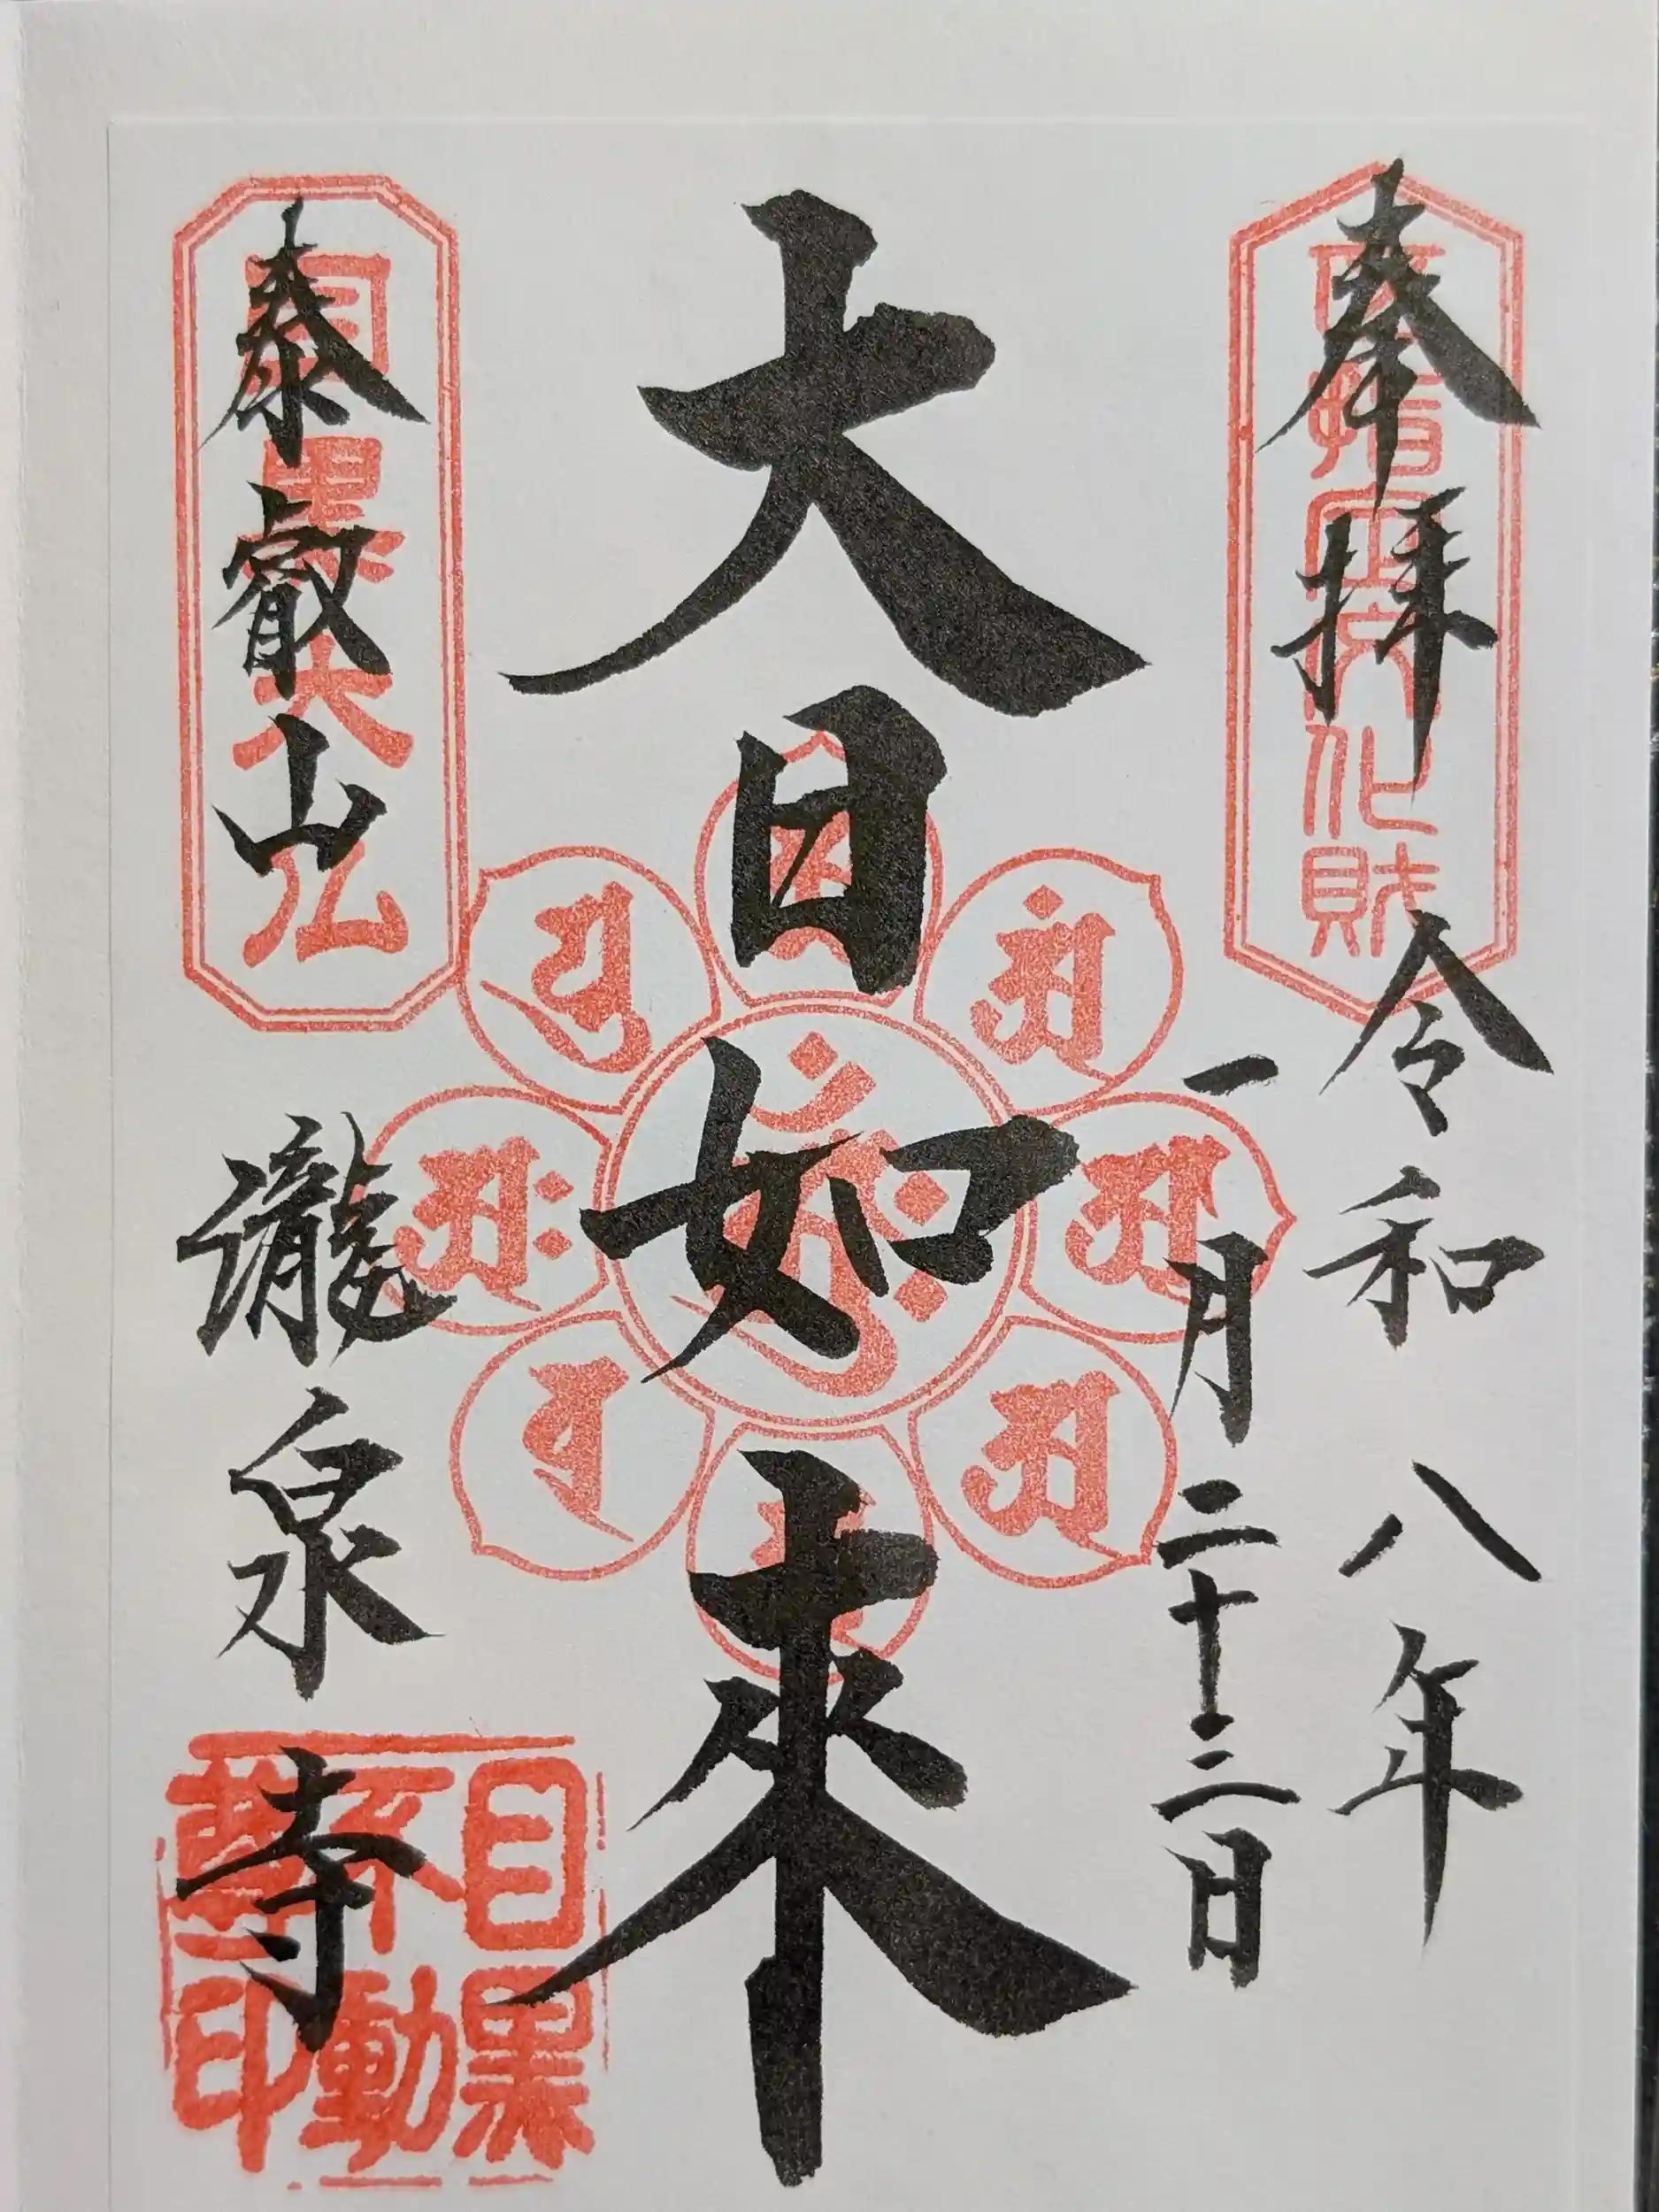 奉拝
令和八年
一月二十三日
大日如来
泰叡山
瀧泉寺
区指定文化財
目黒大仏
目黒
不動
尊印